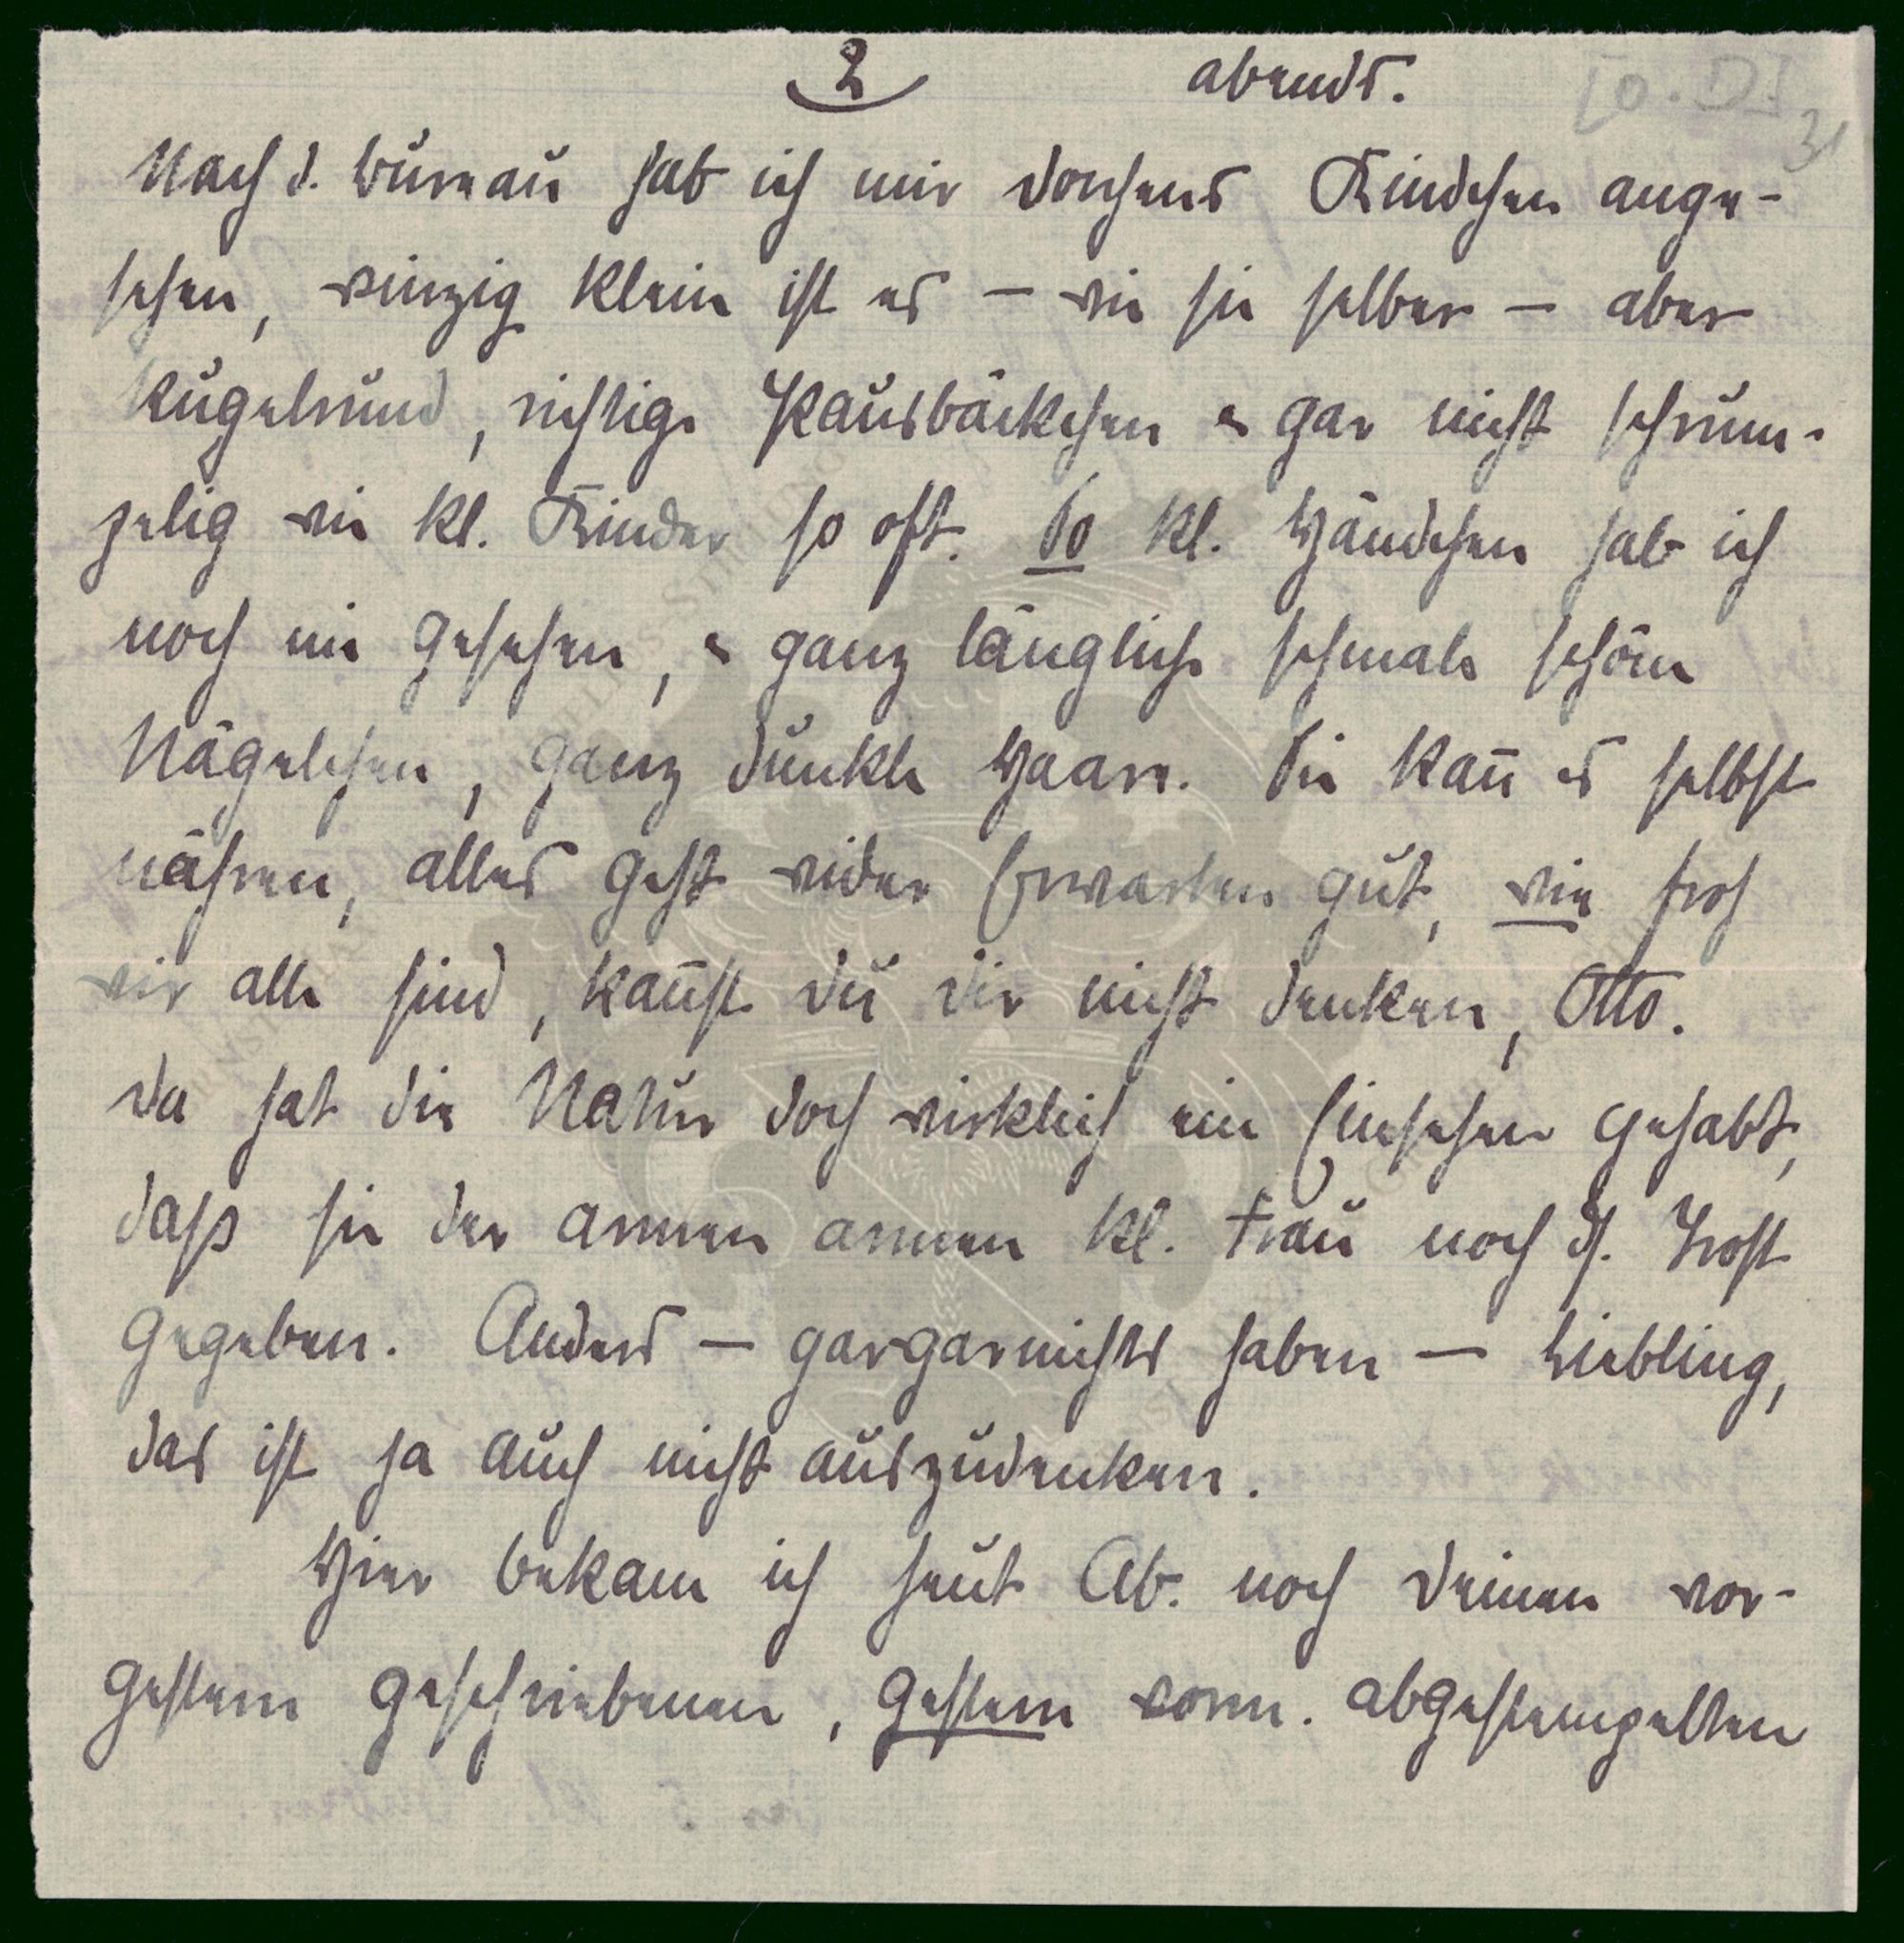 2 abends. [o. D.]
31
Nach d. Büreau hab ich mir Dorchens Kindchen ange-
sehen, winzig klein ist es – wie sie selber – aber
kugelrund, richtige Pausbäckchen u gar nicht schrum-
zelig wie kl. Kinder so oft. So kl. Händchen hab ich
noch nie gesehen, u ganz längliche schmale schöne
Nägelchen, ganz dunkle Haare. Sie kan̄ es selbst
nähren, alles geht wider Erwarten gut, wie froh
wir alle sind, kan̄st Du Dir nicht denken, Otto.
Da hat die Natur doch wirklich ein Einsehen gehabt,
daß sie der armen armen kl. Frau noch ds. Trost
gegeben. Anders – gargarnichts haben – Liebling,
das ist ja auch nicht auszudenken.
Hier bekam ich heut Ab. noch Deinen vor-
gestern geschriebenen, gestern vorm. abgestempelten